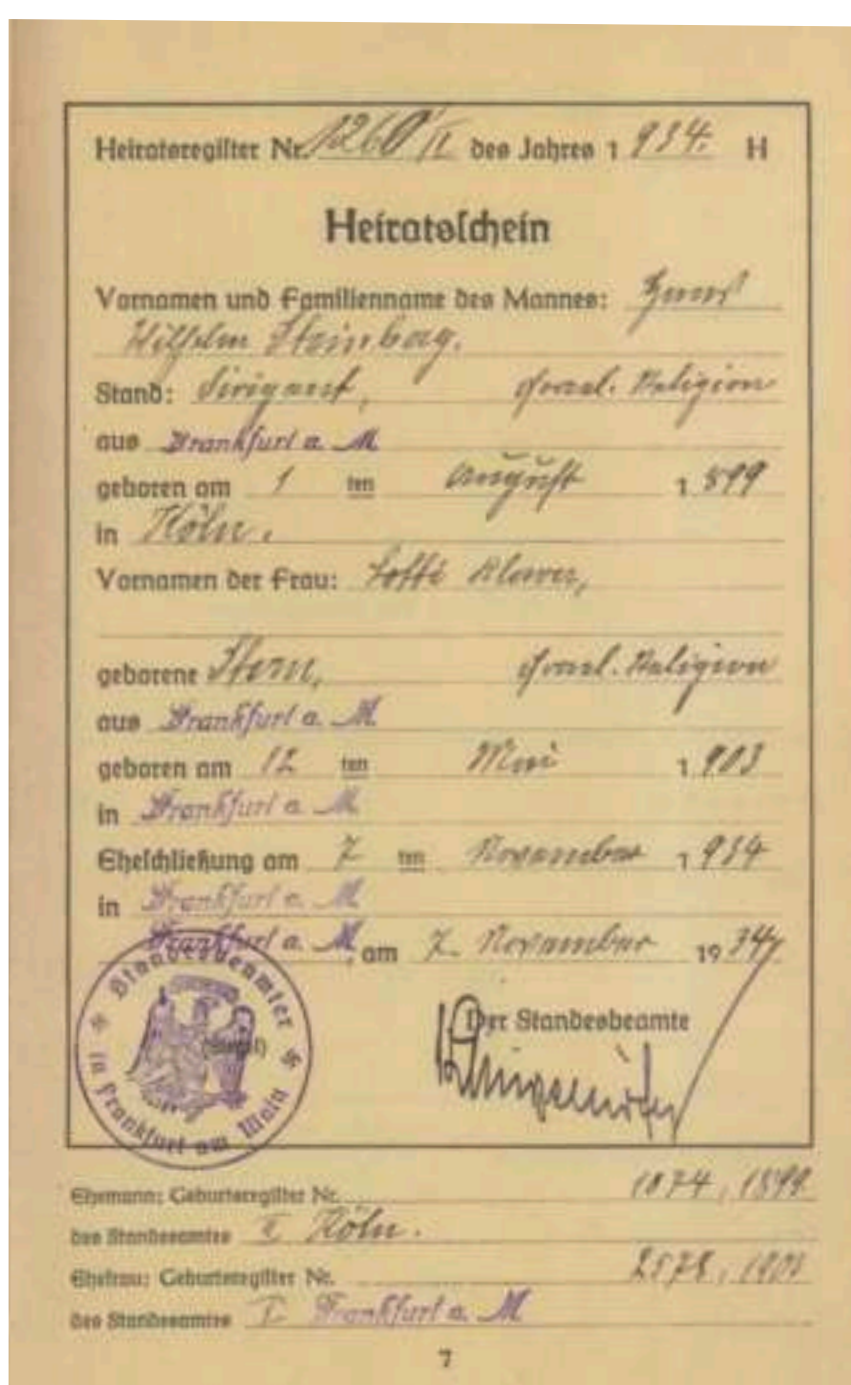 Heiratsregister Nr. 1260/II des Jahres 1934. H
Heiratsschein
Vornamen und Familienname des Mannes: Hans
Wilhelm Steinberg.
Stand: Dirigent, israel. Religion
aus Frankfurt a. M
geboren am 1 ten August 1899
in Köln.
Vornamen der Frau: Lotti
geborene Stern, israel. Religion
aus Frankfurt a. M.
geboren am 12 ten Mai 1903
in Frankfurt a. M.
Eheschließung am 7 ten November 1934
in Frankfurt a. M
Frankfurt a. M, am 7. November 1934
Standesbeamter
in Frankfurt am Main
(Siegel)
Der Standesbeamte
Ehemann: Geburtsregister Nr. 1074, 1899.
des Standesamtes II Köln.
Ehefrau: Geburtsregister Nr. 2578, 1903
des Standesamtes I. Frankfurt a. M
7